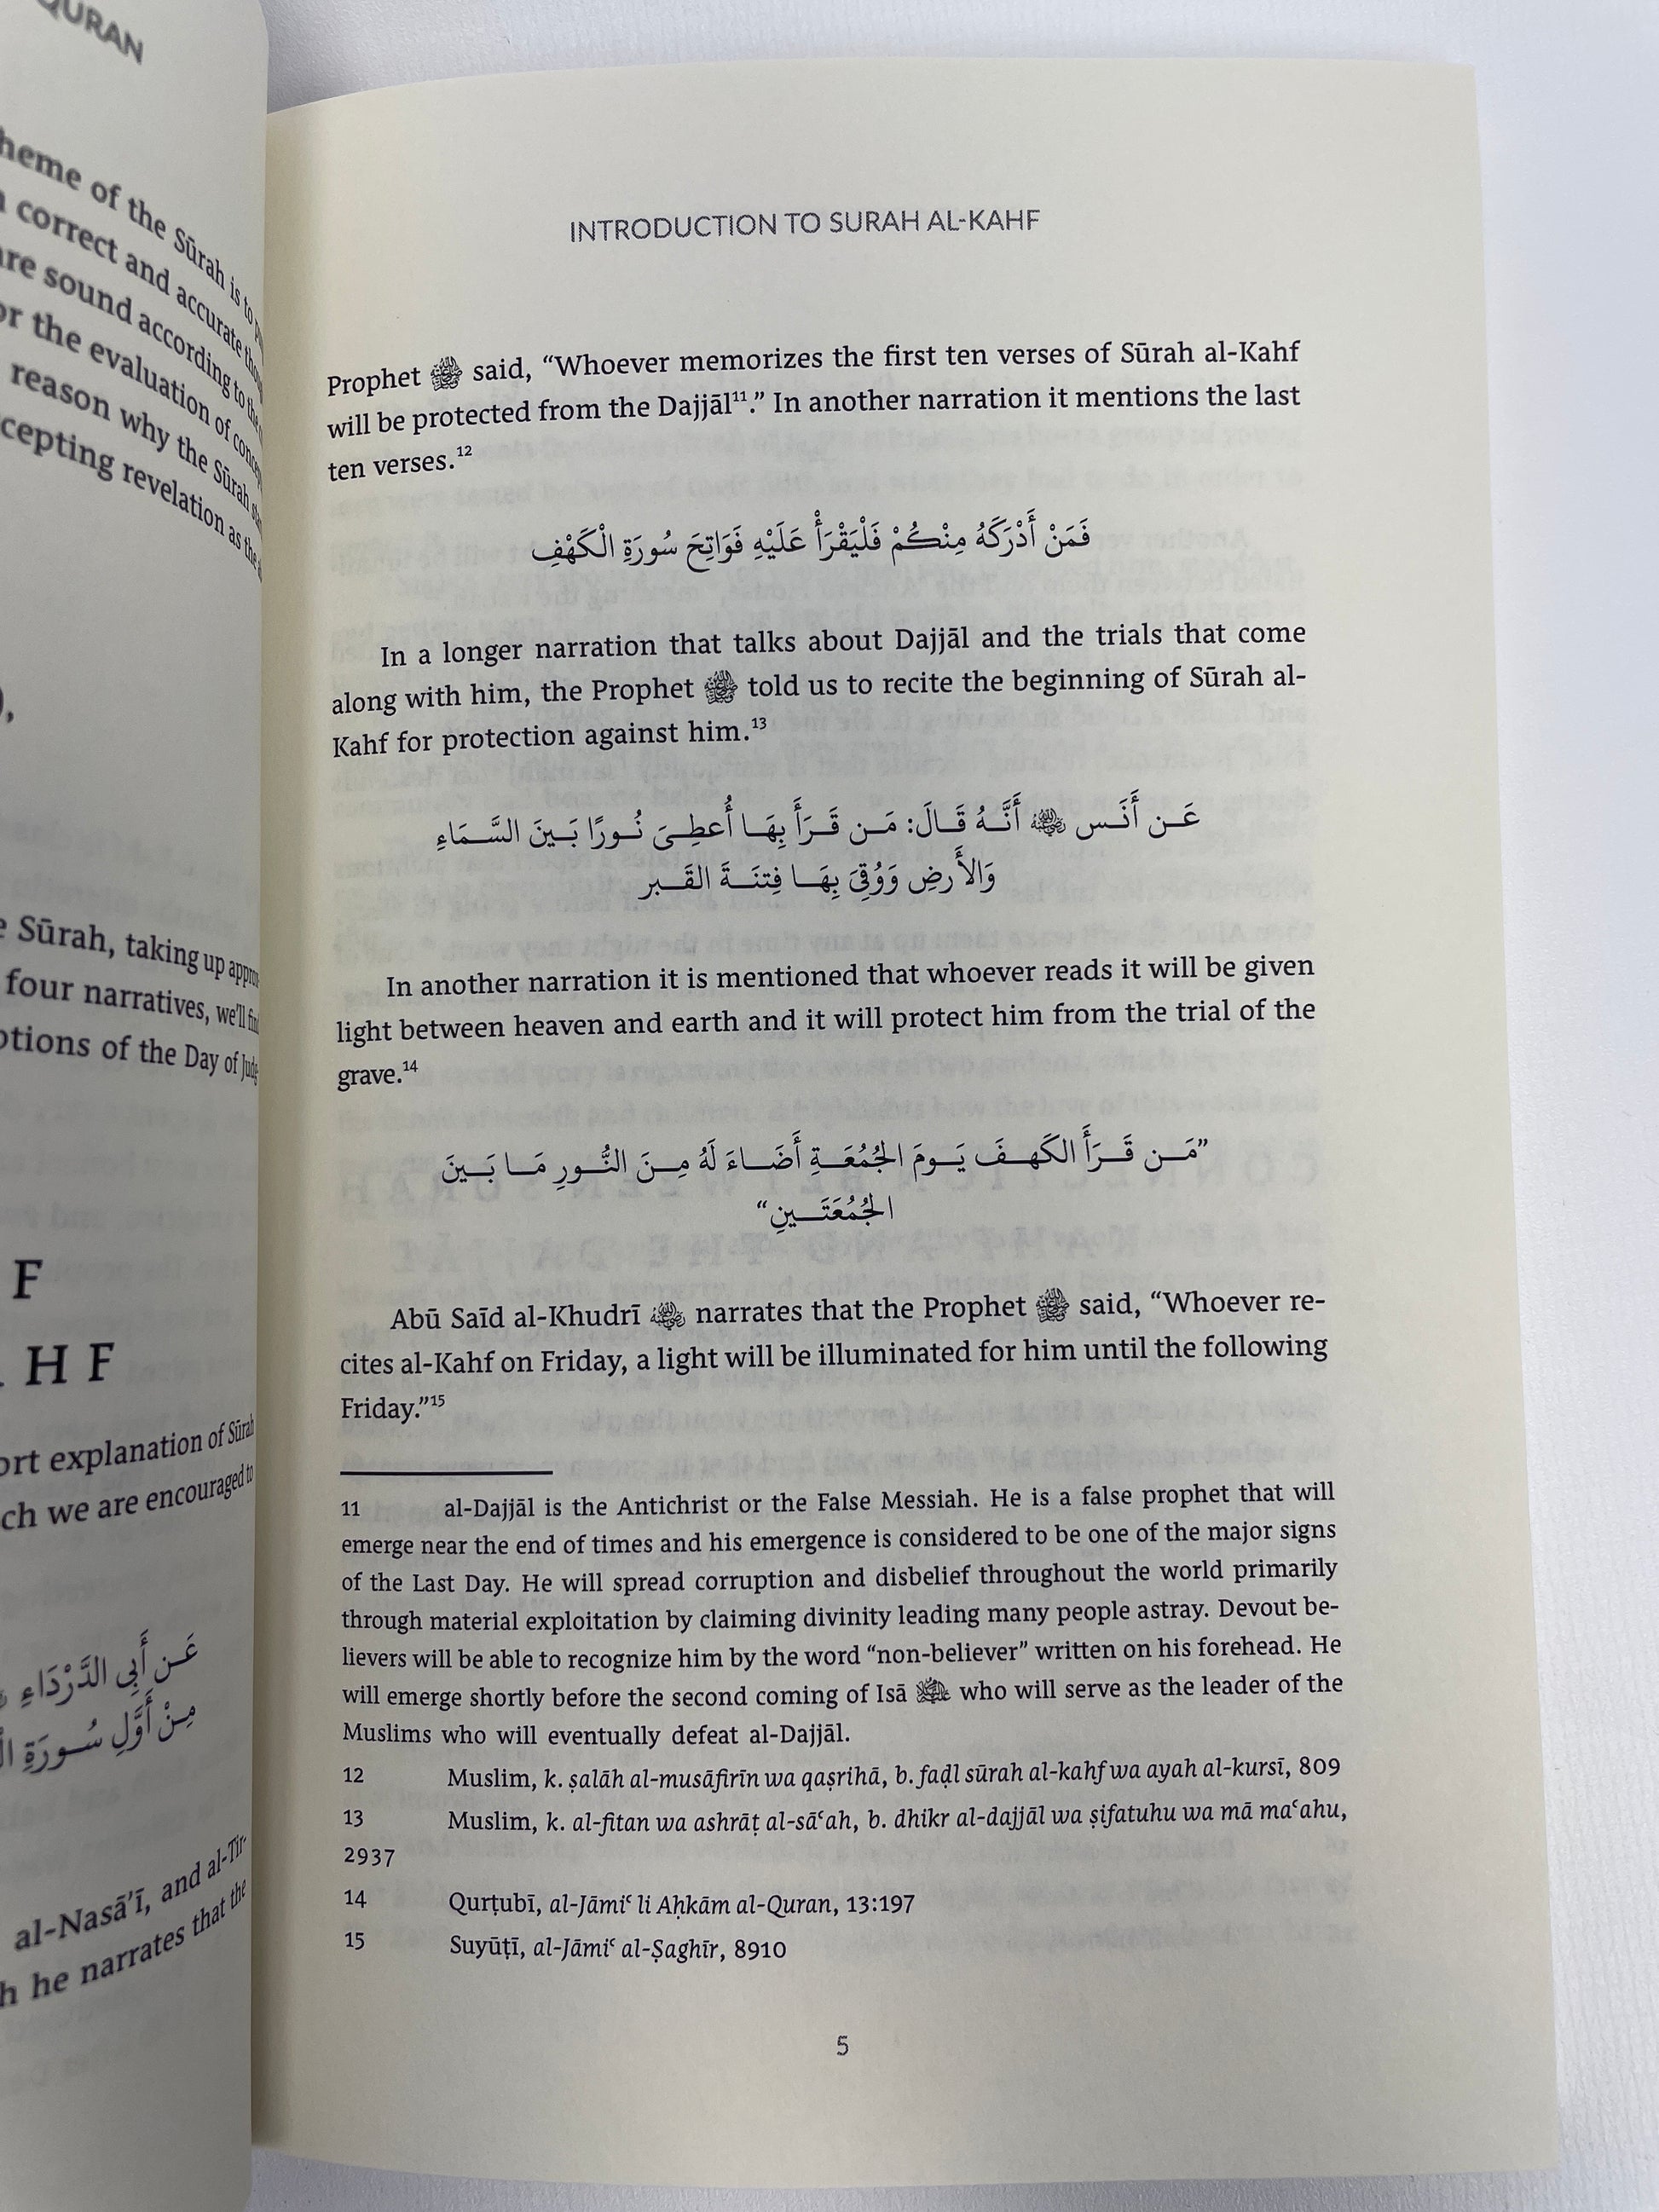 QURAN
heme of the Sūrah is to
correct and accurate
are sound according to the
or the evaluation of
reason why the Sūrah
cepting revelation as the
e Sūrah, taking up
four narratives, we'll
ptions of the Day of
F
H F
ort explanation of Sūrah
ch we are encouraged to
عَـن أَبِي الدَّرْدَاءِ
مِنْ أَوَّلِ سُـورَةِ
al-Nasā’ī, and al-Tir-
h he narrates that the
INTRODUCTION TO SURAH AL-KAHF
Prophet ﷺ said, “Whoever memorizes the first ten verses of Sūrah al-Kahf
will be protected from the Dajjāl¹¹.” In another narration it mentions the last
ten verses.¹²
فَمَنْ أَدْرَكَهُ مِنْكُمْ فَلْيَقْرَأْ عَلَيْهِ فَوَاتِحَ سُورَةِ الْكَهْفِ
In a longer narration that talks about Dajjāl and the trials that come
along with him, the Prophet ﷺ told us to recite the beginning of Sūrah al-
Kahf for protection against him.¹³
عَـن أَنَـس أَنَّـهُ قَـالَ: مَـن قَـرَأَ بِهَـا أُعطِـيَ نُـورًا بَـينَ السَّـمَاءِ
وَالأَرضِ وَوُقِيَ بِهَـا فِتنَـةَ القَـبر
In another narration it is mentioned that whoever reads it will be given
light between heaven and earth and it will protect him from the trial of the
grave.¹⁴
”مَـن قَـرَأَ الكَهـفَ يَـومَ الجُمُعَـةِ أَضَـاءَ لَهُ مِـنَ النُّـورِ مَـا بَـينَ
الجُمُعَتَـينِ“
Abū Saīd al-Khudrī narrates that the Prophet ﷺ said, “Whoever re-
cites al-Kahf on Friday, a light will be illuminated for him until the following
Friday.”¹⁵
11 al-Dajjāl is the Antichrist or the False Messiah. He is a false prophet that will
emerge near the end of times and his emergence is considered to be one of the major signs
of the Last Day. He will spread corruption and disbelief throughout the world primarily
through material exploitation by claiming divinity leading many people astray. Devout be-
lievers will be able to recognize him by the word “non-believer” written on his forehead. He
will emerge shortly before the second coming of Isā who will serve as the leader of the
Muslims who will eventually defeat al-Dajjāl.
12 Muslim, k. ṣalāh al-musāfirīn wa qaṣrihā, b. faḍl sūrah al-kahf wa ayah al-kursī, 809
13 Muslim, k. al-fitan wa ashrāṭ al-sāʿah, b. dhikr al-dajjāl wa ṣifatuhu wa mā maʿahu,
2937
14 Qurṭubī, al-Jāmiʿ li Aḥkām al-Quran, 13:197
15 Suyūṭī, al-Jāmiʿ al-Ṣaghīr, 8910
5